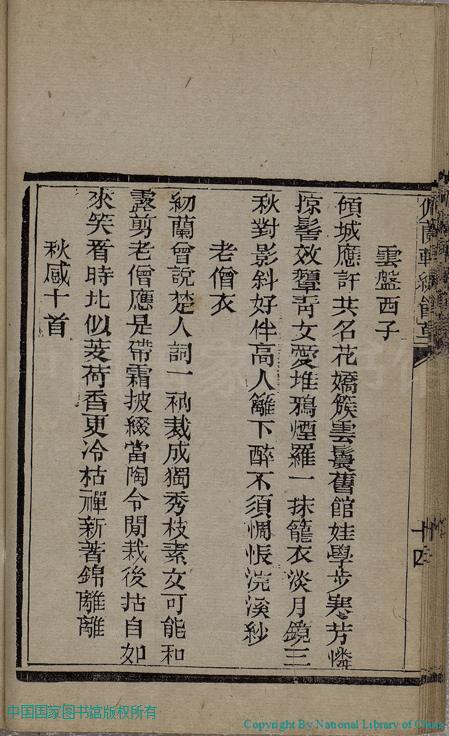 雲盤西子
傾城應許共名花嬌簇雲鬟舊館娃學步寒芳憐
掠鬢效顰青女愛堆鴉煙羅一抹籠衣淡月鏡三
秋對影斜好伴高人籬下醉不須惆悵浣溪紗
老僧衣
紉蘭曾說楚人詞一衲裁成獨秀枝素女可能和
露剪老僧應是帶霜披綴當陶令閒栽後拈自如
來笑看時比似芰荷香更冷枯禪新著錦離離
秋感十首
中国国家图书馆版权所有
Copyright By National Library of China